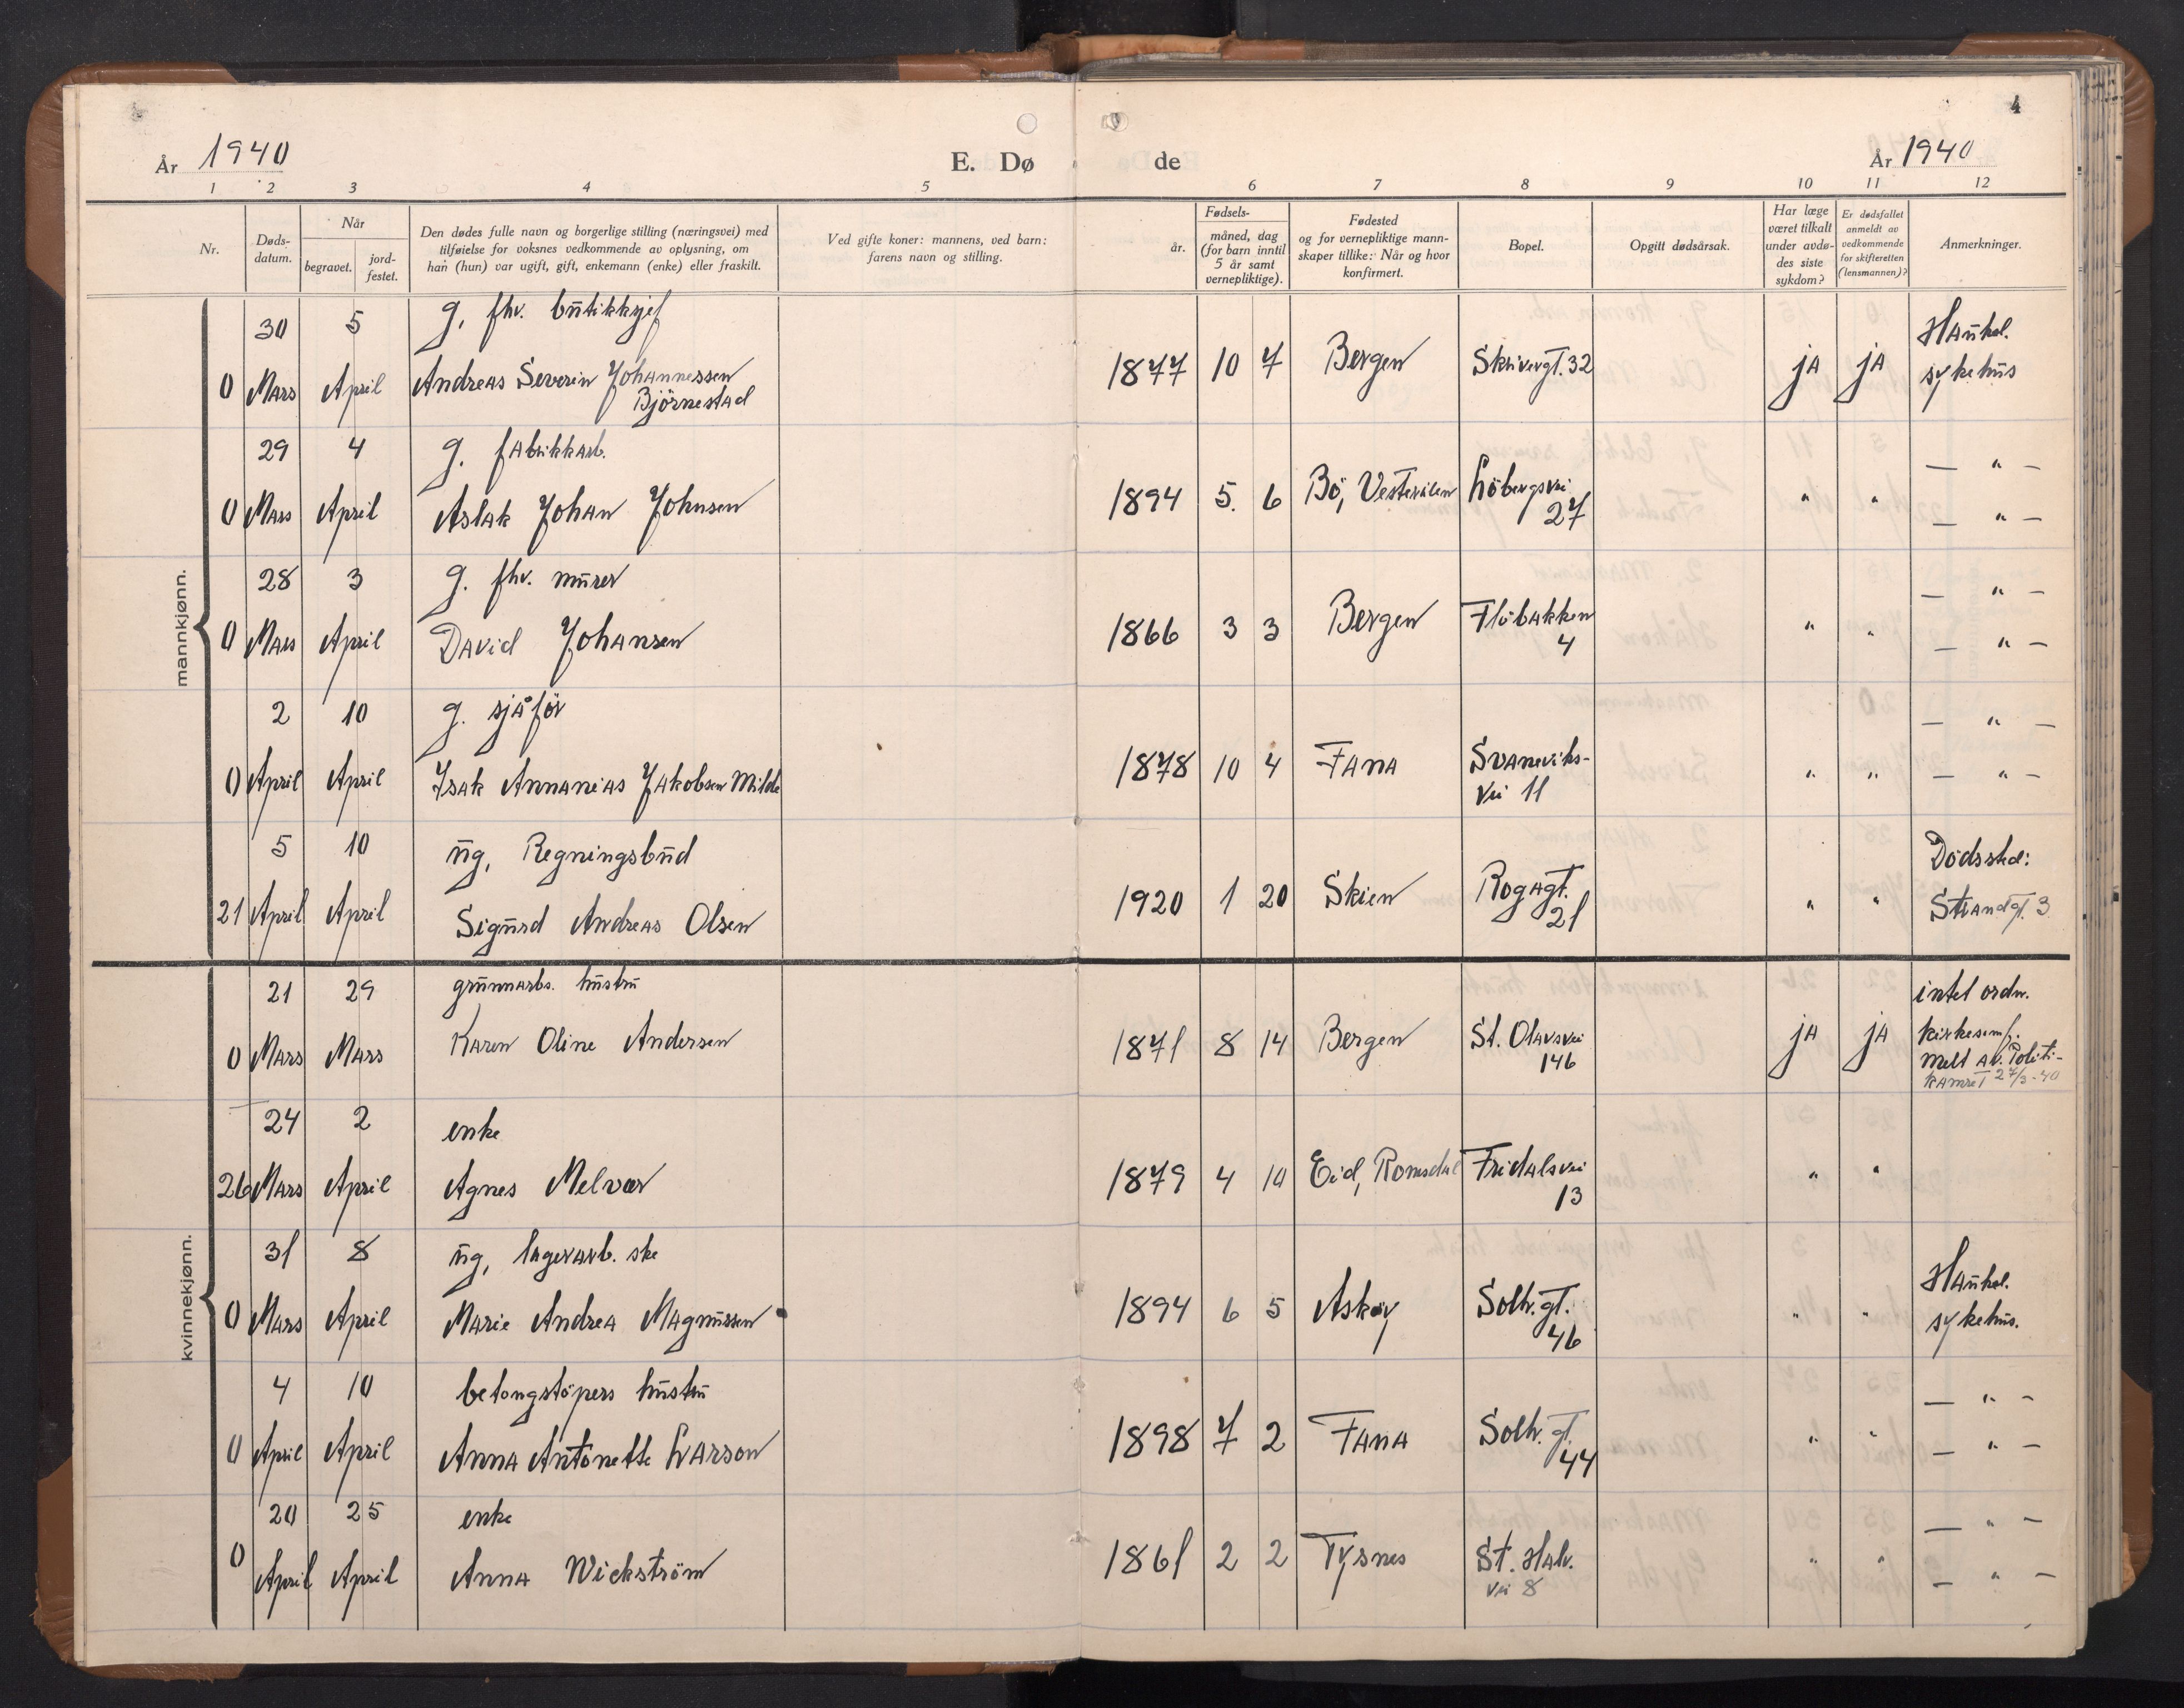 4
År 1940 E. Dø de År 1940
1 2 3 4 5 6 7 8 9 10 11 12
Nr.
Døds-
datum.
Når
begravet.
jord-
festet.
Den dødes fulle navn og borgerlige stilling (næringsvei) med
tilføielse for voksnes vedkommende av oplysning, om
han (hun) var ugift, gift, enkemann (enke) eller fraskilt.
Ved gifte koner: mannens, ved barn:
farens navn og stilling.
Fødsels-
år.
måned, dag
(for barn inntil
5 år samt
vernepliktige).
Fødested
og for vernepliktige mann-
skaper tillike: Når og hvor
konfirmert.
Bopel.
Opgitt dødsårsak.
Har læge
været tilkalt
under avdø-
des siste
sykdom?
Er dødsfallet
anmeldt av
vedkommende
for skifteretten
(lensmannen)?
Anmerkninger.
mannkjønn.
30 5 g. fhv. butikksjef Haukel.
0 Mars April Andreas Severin Johannessen 1877 10 7 Bergen Skivergt. 32 ja ja sykehus
Björnestad
29 4 g. fabrikkarb. — " —
0 Mars April Aslak Johan Johnsen 1894 5. 6 Bö, Vesterålen Löbergsvei " " — " —
27
28 3 g. fhv. murer — " —
0 Mars April David Johansen 1866 3 3 Bergen Flöbakken " " — " —
4
2 10 g. sjåför — " —
0 April April Isak Annanias Jakobsen Milde 1878 10 4 Fana Svaneviks- " " — " —
vei 11
5 10 ug, Regningsbud Dödssted:
21 April April Sigurd Andreas Olsen 1920 1 20 Skien Rogagt. " " Strandgt. 3
21
kvinnekjønn.
21 29 grunnarbs. hustru intet ordn.
0 Mars Mars Karen Oline Andersen 1871 8 14 Bergen St. Olavsvei ja ja
146
melt av. Politi-
kamret 27/3-40
24 2 enke
26 Mars April Agnes Melvær 1879 4 10 Eid, Romsdal Fridalsvei " "
13
31 8 ug, lagerarb. ske Haukel.
0 Mars April Marie Andrea Magnussen 1894 6 5 Askøy Solh. gt. " " sykehus.
46
4 10 betongstöpers hustru — " —
0 April April Anna Antonette Larson 1898 7 2 Fana Solh. gt. " " — " —
44
20 25 enke — " —
0 April April Anna Wickström 1861 2 2 Tysnes St. Halv. " " — " —
vei 8